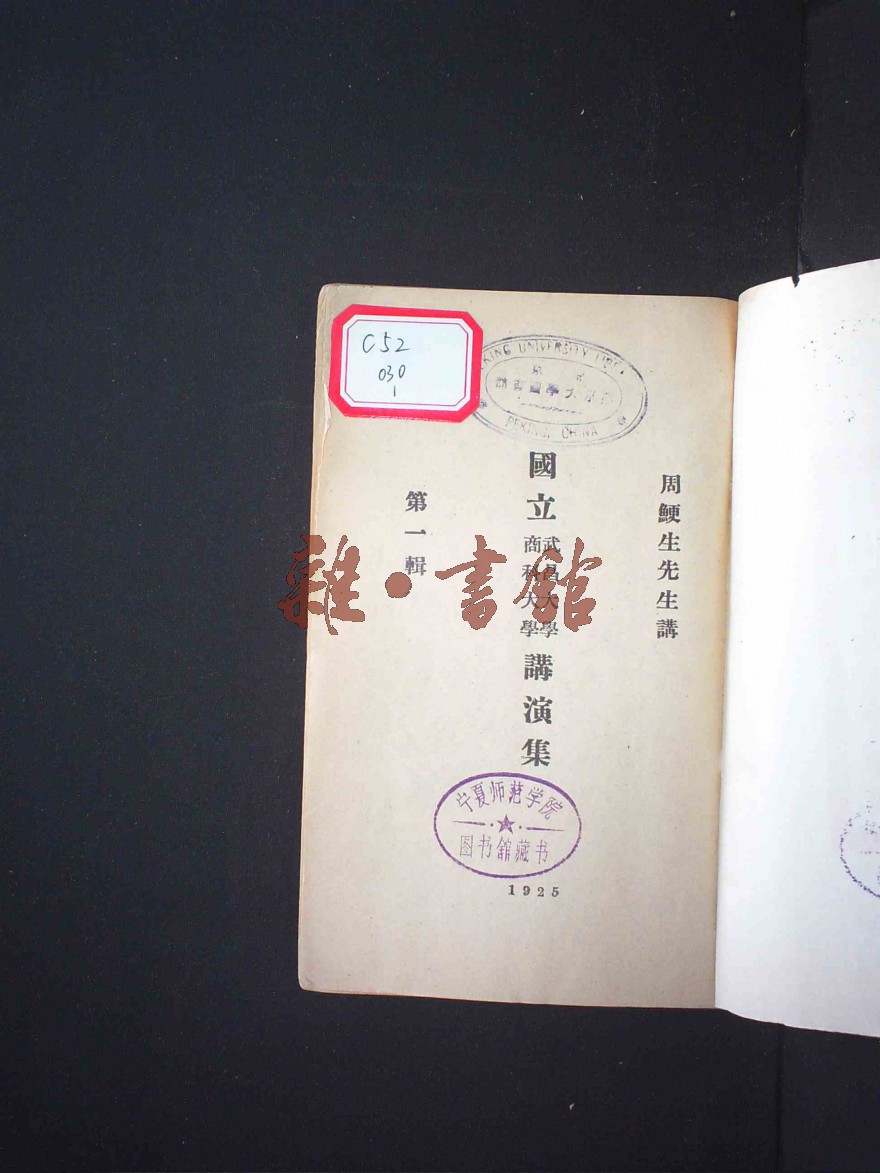 C52
030
1
PEKING UNIVERSITY LIBRARY
PEKING, CHINA
周鯁生先生講
國立
武昌大學
商科大學
講演集
第一輯
雜·書館
宁夏师范学院
图书馆藏书
1925